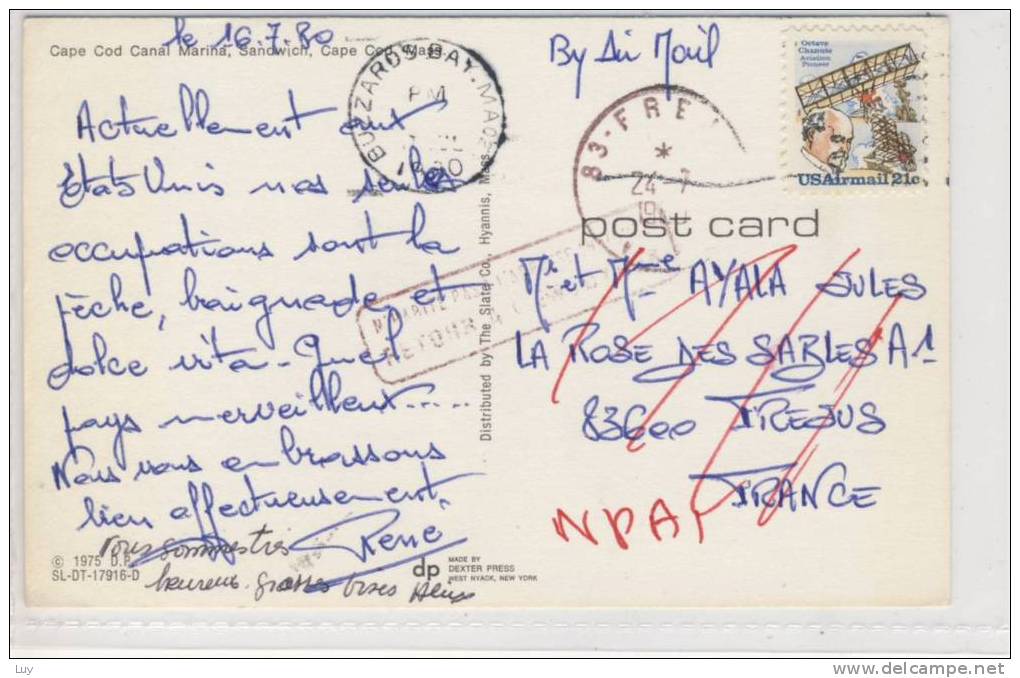 Cape Cod Canal Marina, Sandwich, Cape Cod, Mass.
le 16.7.80
Actuellement aux
Etats Unis nos seules
occupations sont la
pêche, baignade et
dolce vita - Quel
pays merveilleux.....
Nous vous embrassons
bien affectueusement.
René
Nous sommes très
heureux. grosses bises
© 1975 D.P.
SL-DT-17916-D
Distributed by The Slate Co., Hyannis, Mass.
dp
MADE BY
DEXTER PRESS
WEST NYACK, NEW YORK
BUZZARDS BAY. MA
PM
1980
By Air Mail
83-FRE
*
24-7
19
Octave
Chanute
Aviation
Pioneer
USAirmail 21c
post card
RETOUR
Mr et Mme AYALA JULES
LA ROSE DES SABLES A1
83600 FREJUS
FRANCE
NPAI
Luy
delcampe.net